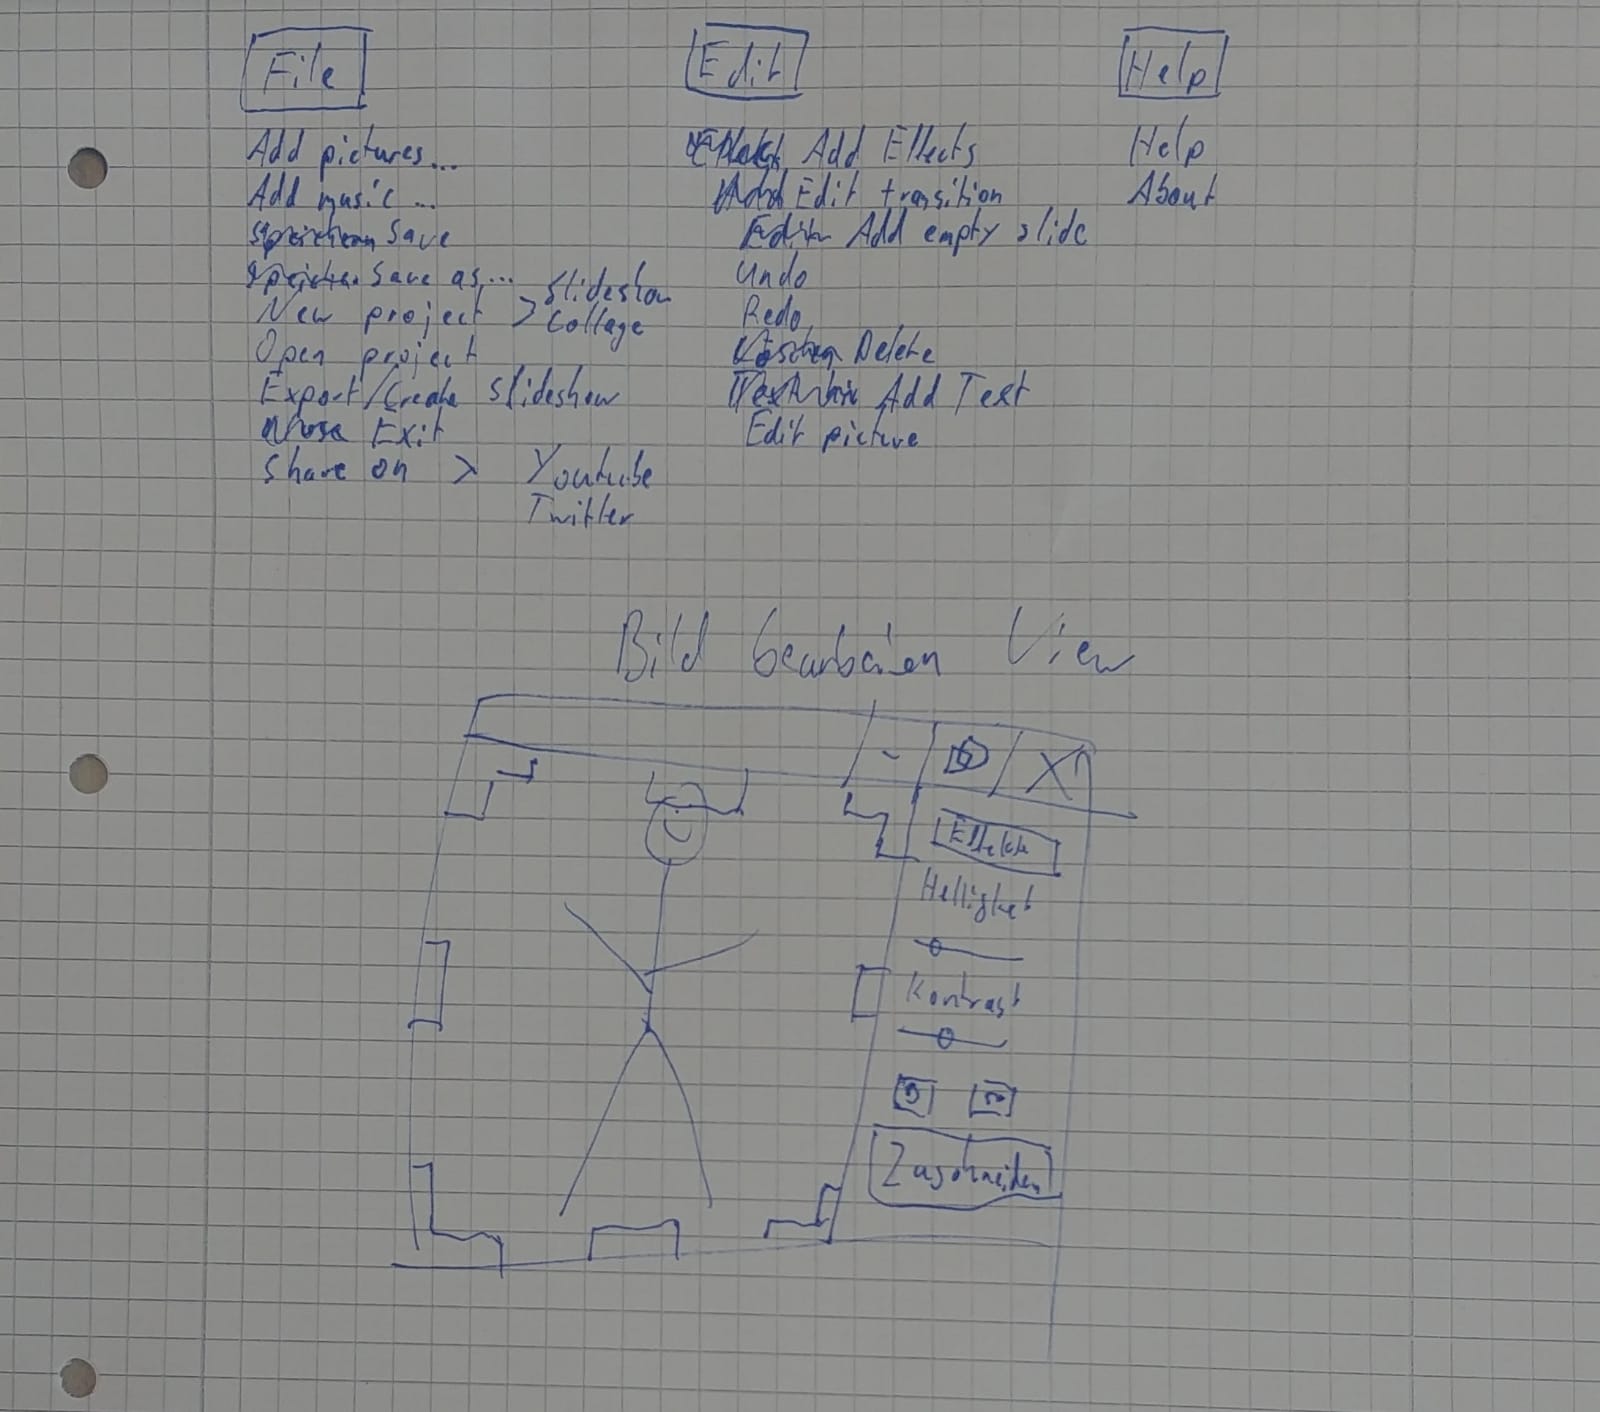 File
Add pictures...
Add music...
Speichern Save
Speichern Save as...
New project > Slideshow
Collage
Open project
Export/Create slideshow
Exit
Share on > Youtube
Twitter
Edit
Add Effects
Edit transition
Add empty slide
Undo
Redo
Löschen Delete
Add Text
Edit picture
Help
Help
About
Bild bearbeiten View
- X
Effekte
Helligkeit
Kontrast
Zuschneiden